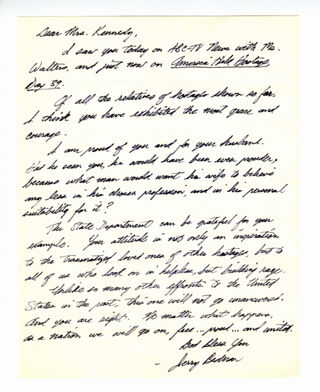 Dear Mrs. Kennedy,
I saw you today on ABC-TV News with Ms.
Walters, and just now on America Held Hostage
Day 39.
Of all the relatives of hostages shown so far,
I think you have exhibited the most grace and
courage.
I am proud of you and for your husband.
Had he seen you, he would have been even prouder,
because what man would want his wife to behave
any less in his chosen profession, and in his personal
suitability for it?
The State Department can be grateful for your
example. Your attitude is not only an inspiration
to the traumatized loved ones of other hostages, but to
all of us who look on in helpless, but building rage.
Unlike so many other affronts to the United
States in the past, this one will not go unanswered.
And you are right. No matter what happens,
as a nation we will go on, free... proud... and united.
God bless you
Jerry